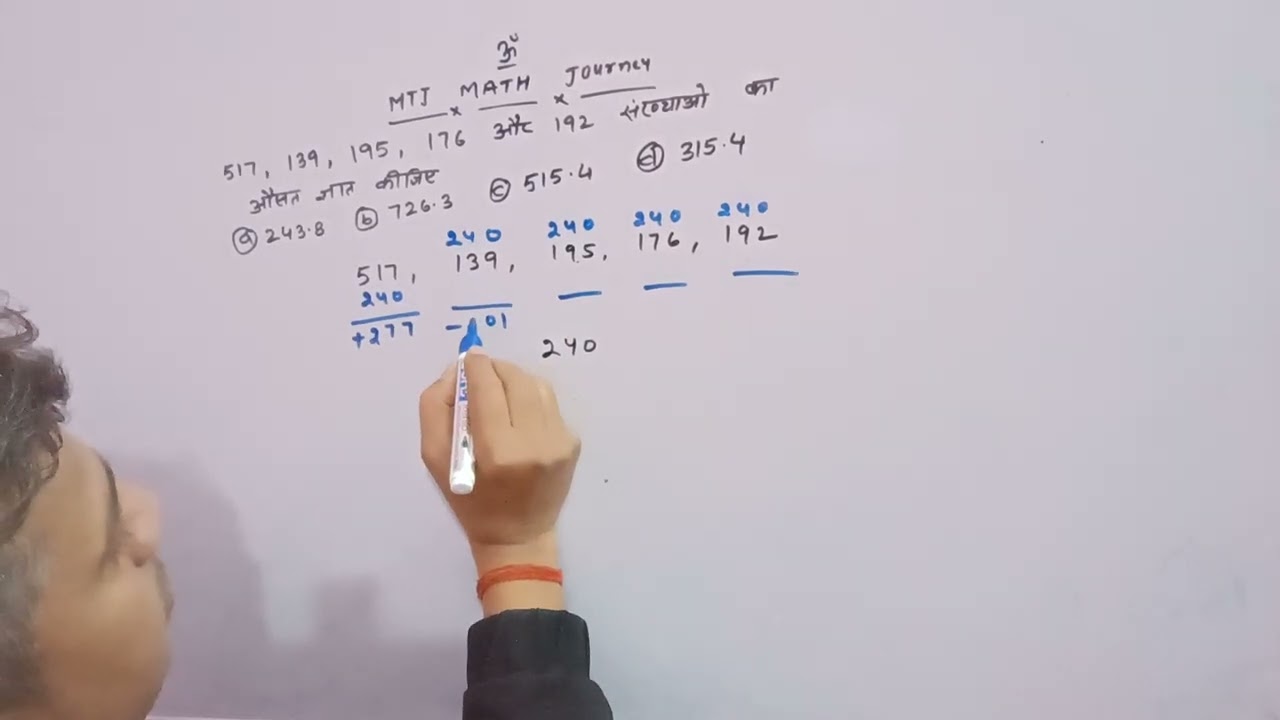 ॐ
MTJ × MATH × Journey
517, 139, 195, 176 और 192 संख्याओ का
औसत ज्ञात कीजिए
ⓐ 243.8 ⓑ 726.3 ⓒ 515.4 ⓓ 315.4
240 240 240 240
517, 139, 195, 176, 192
240
+277 -101
240